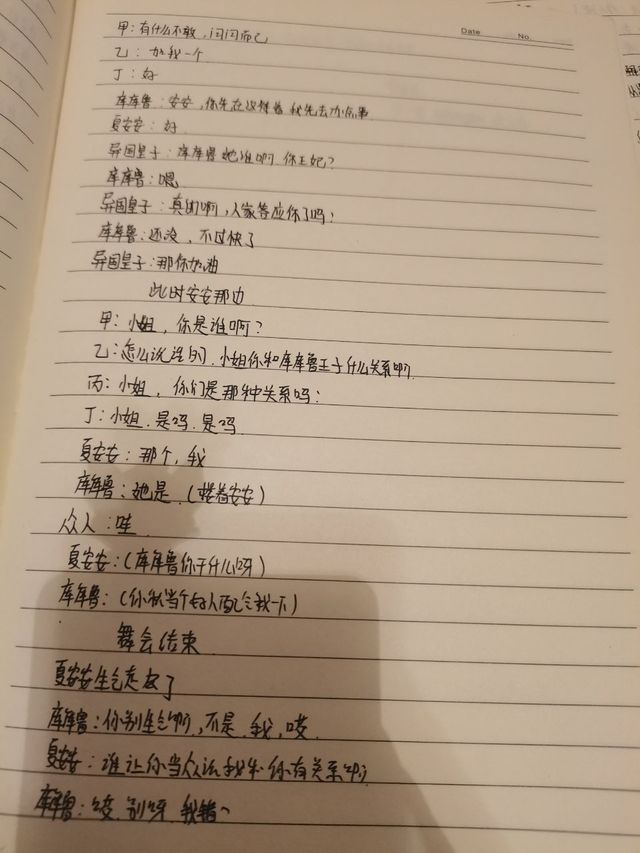 Date No.
甲：有什么不敢，问问而已
乙：加我一个
丁：好
库库鲁：安安，你先在这等着 我先去办点事
夏安安：好
异国皇子：库库鲁她谁啊 你王妃？
库库鲁：嗯
异国皇子：真的啊，人家答应你了吗？
库库鲁：还没，不过快了
异国皇子：那你加油
此时安安那边
甲：小姐，你是谁啊？
乙：怎么说话的，小姐你和库库鲁王子什么关系啊
丙：小姐，你们是那种关系吗？
丁：小姐 是吗 是吗
夏安安：那个，我
库库鲁：她是（搂着安安）
众人：哇
夏安安：（库库鲁你干什么呀）
库库鲁：（你就当个好人配合我一下）
舞会结束
夏安安生气走了
库库鲁：你别生气啊，不是 我，哎
夏安安：谁让你当众说我和你有关系啊
库库鲁：别呀 我错~